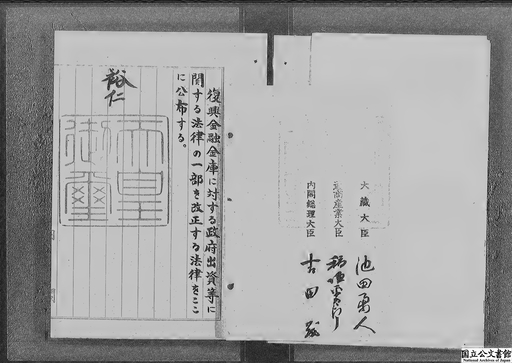 復興金融金庫に対する政府出資等に
関する法律の一部を改正する法律をここ
に公布する。
裕仁
天皇
御璽
大藏大臣 池田勇人
通商産業大臣 稲垣平太郎
内閣総理大臣 吉田茂
国立公文書館
National Archives of Japan